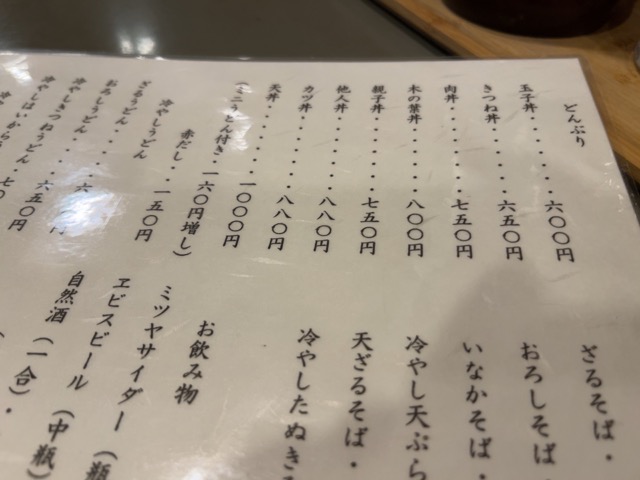 どんぶり
玉子丼・・・・・・六〇〇円
きつね丼・・・・・六五〇円
肉丼・・・・・・・七五〇円
木の葉丼・・・・・八〇〇円
親子丼・・・・・・七五〇円
他人丼・・・・・・八八〇円
カツ丼・・・・・・八八〇円
天丼・・・・・・一〇〇〇円
(ミニうどん付き・一六〇円増し)
赤だし・・一五〇円
冷やしうどん
ざるうどん・・・
おろしうどん・・・・六
冷やしきつねうどん・六五〇円
冷やしはいから
ざるそば・
おろしそば
いなかそば・
冷やし天ぷら
天ざるそば・
冷やしたぬき
お飲み物
ミツヤサイダー(瓶
ヱビスビール(中瓶
自然酒(一合)・